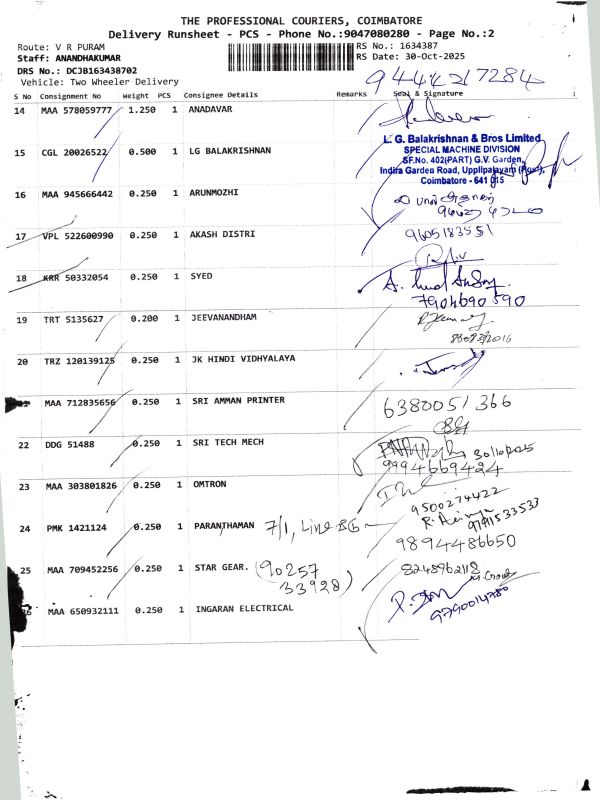 THE PROFESSIONAL COURIERS, COIMBATORE
Delivery Runsheet - PCS - Phone No.:9047080280 - Page No.:2
Route: V R PURAM
RS No.: 1634387
Staff: ANANDHAKUMAR
RS Date: 30-Oct-2025
DRS No.: DCJB163438702
Vehicle: Two Wheeler Delivery
9444217284
S No Consignment No Weight PCS Consignee Details Remarks Seal & Signature
14 MAA 578059777 1.250 1 ANADAVAR
L. G. Balakrishnan & Bros Limited
SPECIAL MACHINE DIVISION
15 CGL 20026522 0.500 1 LG BALAKRISHNAN
SF.No. 402(PART) G.V. Garden,
Indira Garden Road, Upplipalayam (Post),
Coimbatore - 641 015
16 MAA 945666442 0.250 1 ARUNMOZHI
17 VPL 522600990 0.250 1 AKASH DISTRI
9605183551
18 KRR 50332054 0.250 1 SYED
7904690590
19 TRT 5135627 0.200 1 JEEVANANDHAM
20 TRZ 120139125 0.250 1 JK HINDI VIDHYALAYA
MAA 712835656 0.250 1 SRI AMMAN PRINTER
6380051366
22 DDG 51488 0.250 1 SRI TECH MECH
30/10/2025
9994669424
23 MAA 303801826 0.250 1 OMTRON
9500274422
24 PMK 1421124 0.250 1 PARANTHAMAN 7/1,
9791533533
9894486650
25 MAA 709452256 0.250 1 STAR GEAR. (90257
33928)
8248962118
26 MAA 650932111 0.250 1 INGARAN ELECTRICAL
9790014780